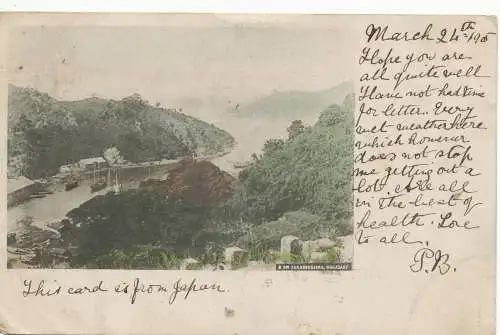 March 24th 1905
Hope you are
all quite well
Have not had time
for letter. Every
wet weather here
which however
does not stop
me getting out a
lot. are all
in the best of
health. Love
to all.
P.B.
This card is from Japan.